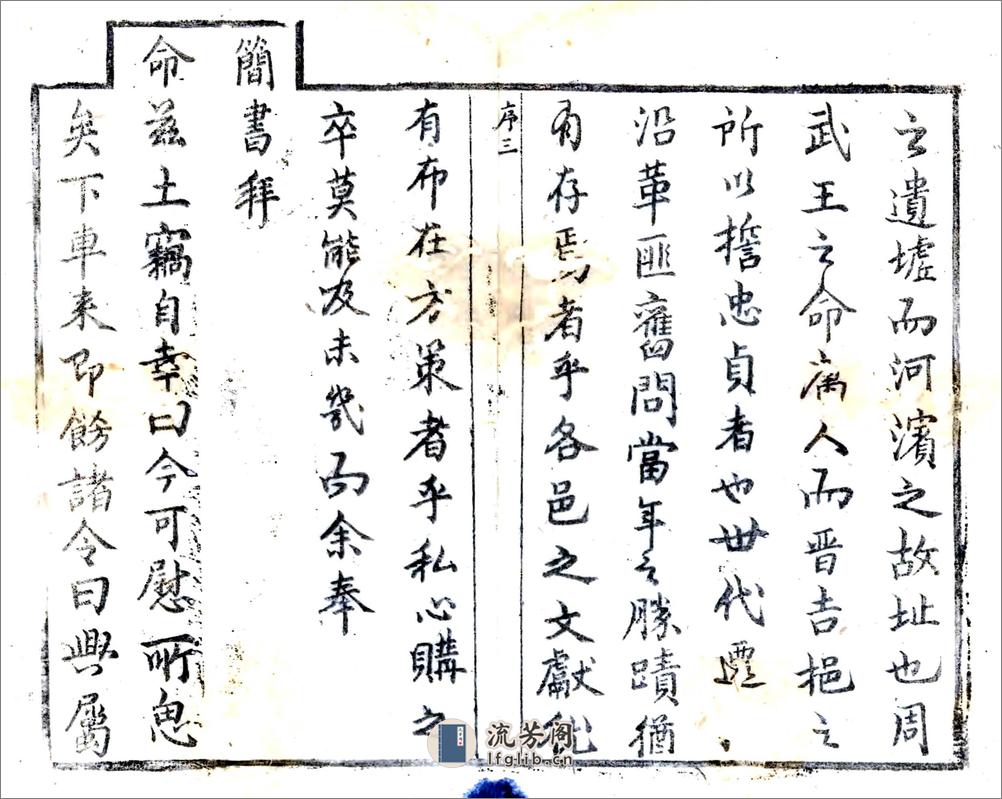 之遺墟而河濱之故址也周
武王之命人而晋吉挹之
所以忠貞者也世代遷
沿革匪舊問當年之勝蹟猶
有存焉者乎各邑之文獻
序三
有布在方策者乎私心購之
卒莫能及未幾而余奉
簡書拜
命兹土竊自幸曰今可慰所思
矣下車来即餙諸令曰興屬
流芳阁
lfglib.cn